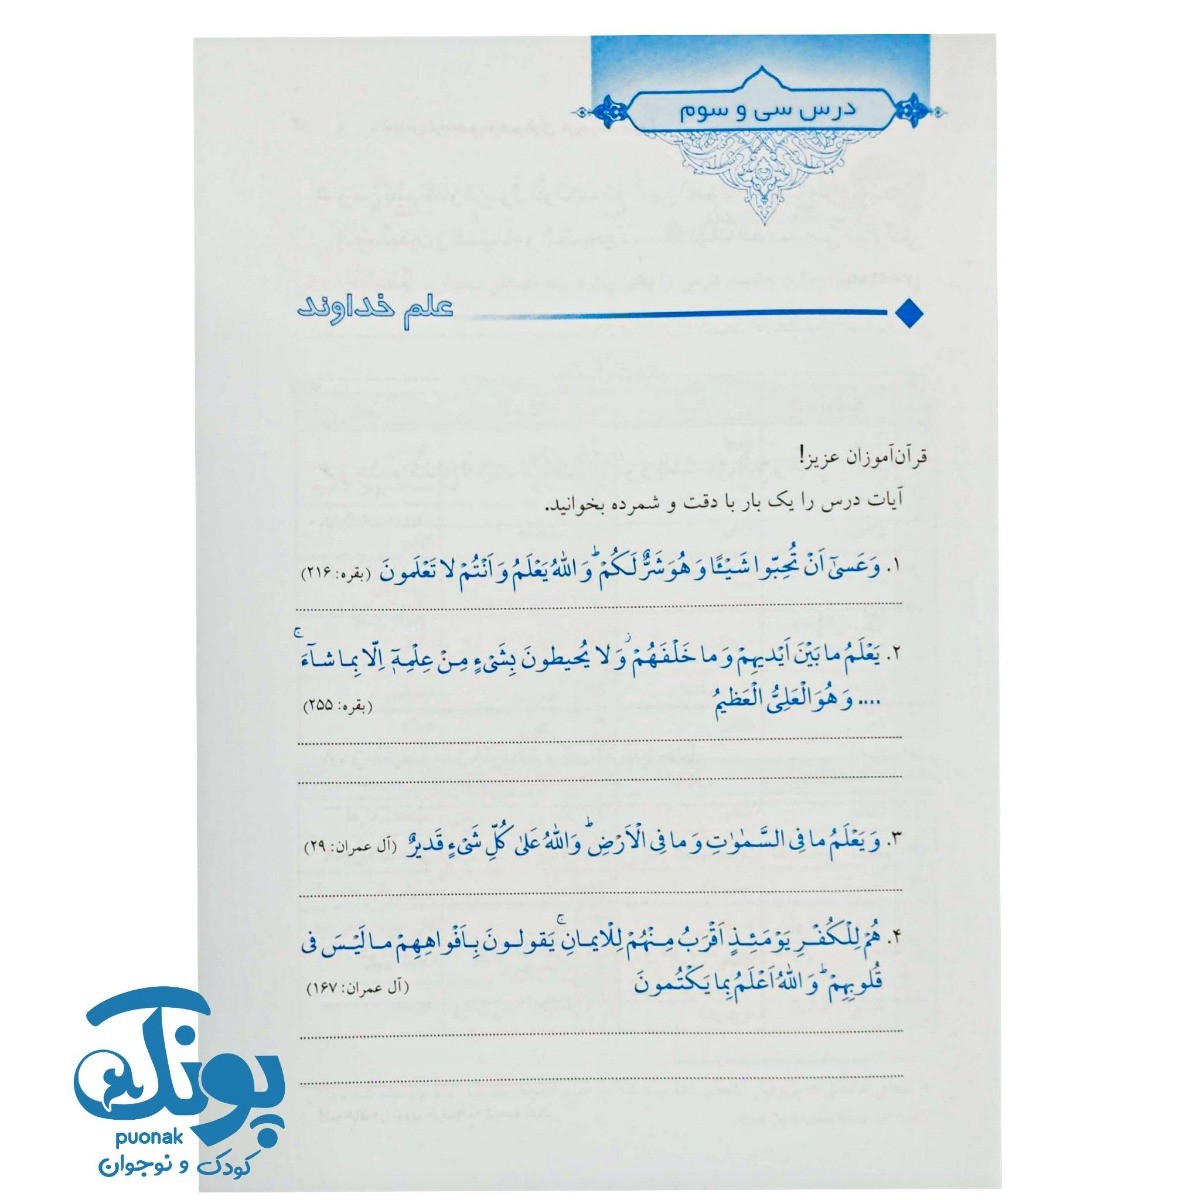 درس سی و سوم
علم خداوند
قرآن‌آموزان عزیز!
آیات درس را یک بار با دقت و شمرده بخوانید.
۱. وَ عَسىٰٓ اَنْ تُحِبّوا شَیْـًٔا وَ هُوَ شَرٌّ لَكُمْ ؕ وَ اللّٰهُ یَعْلَمُ وَ اَنْتُمْ لا تَعْلَمونَ (بقره: ۲۱۶)
۲. یَعْلَمُ ما بَیْنَ اَیْدیهِمْ وَ ما خَلْفَهُمْ ۖ وَ لا یُحیطونَ بِشَیْءٍ مِنْ عِلْمِهٖٓ اِلّا بِما شآءَ ۚ
.... وَ هُوَ الْعَلِیُّ الْعَظیمُ (بقره: ۲۵۵)
۳. وَ یَعْلَمُ ما فِی السَّمٰوٰتِ وَ ما فِی الْاَرْضِ ؕ وَ اللّٰهُ عَلىٰ كُلِّ شَیْءٍ قَدیرٌ (آل عمران: ۲۹)
۴. هُمْ لِلْكُفْرِ یَوْمَئِذٍ اَقْرَبُ مِنْهُمْ لِلْایمانِ ۚ یَقولونَ بِاَفْواهِهِمْ ما لَیْسَ فی
قُلوبِهِمْ ؕ وَ اللّٰهُ اَعْلَمُ بِما یَكْتُمونَ (آل عمران: ۱۶۷)
پونک
puonak
کودک و نوجوان